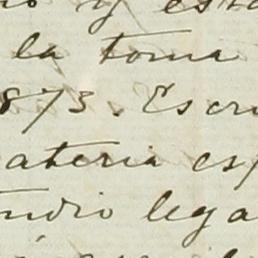 y est
la toma
873. Escri
ateria esp
tudio lega